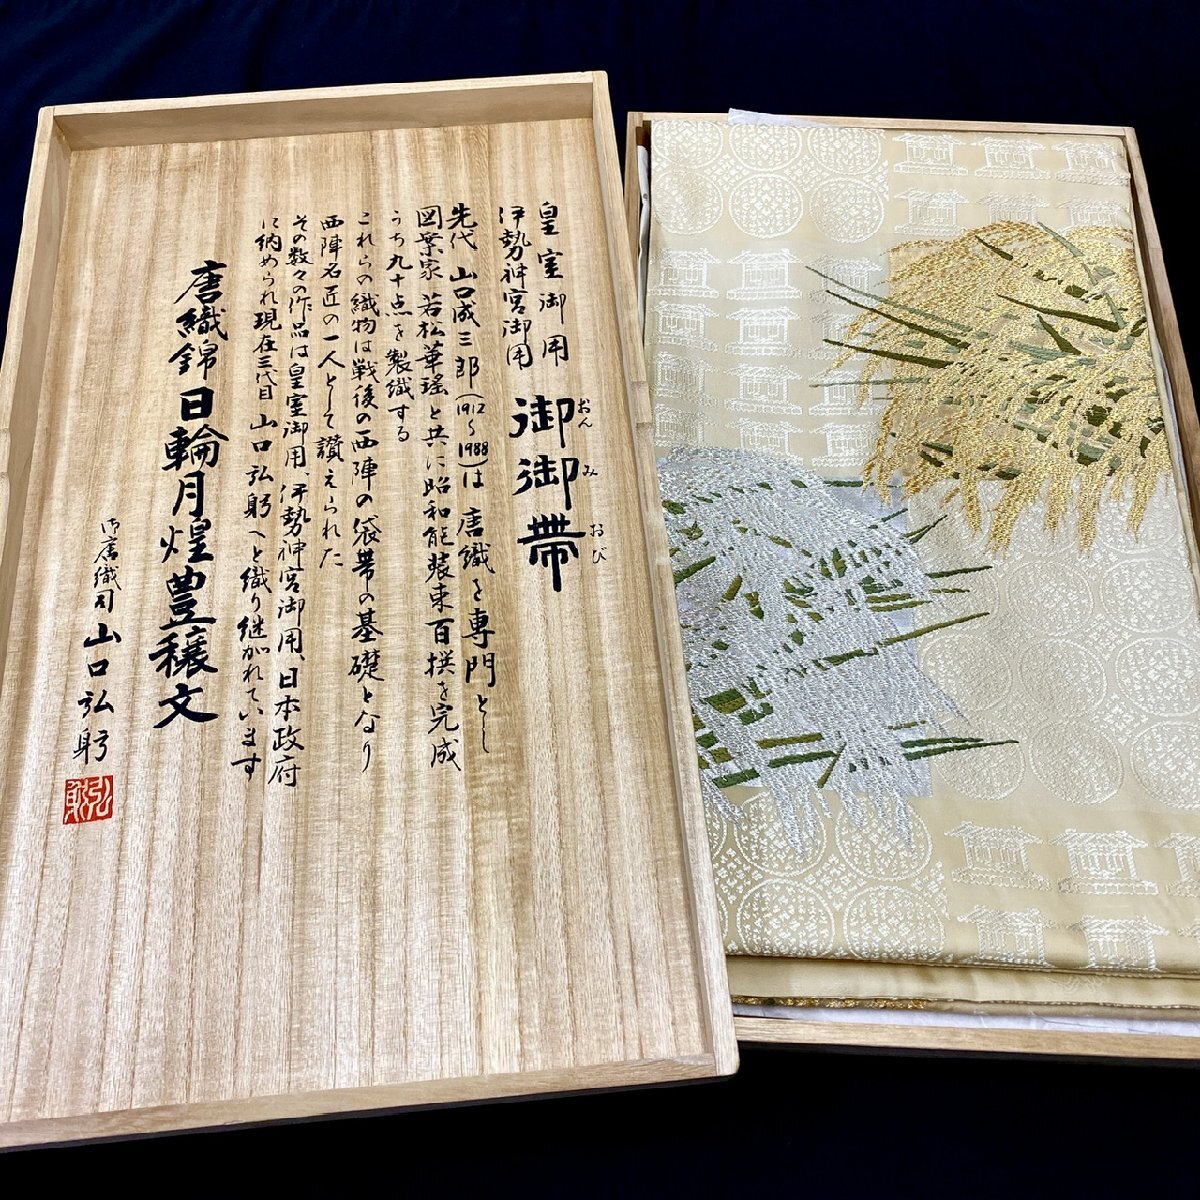 皇室御用
伊勢神宮御用
御御帯
おん
み
おび
先代 山口成三郎(1912〜1988)は 唐織を専門とし
図案家 若松華瑶と共に昭和能装束百撰を完成
うち九十点を製織する
これらの織物は戦後の西陣の袋帯の基礎となり
西陣名匠の一人として讃えられた
その数々の作品は皇室御用、伊勢神宮御用、日本政府
に納められ現在三代目 山口弘躬へと織り継がれています
唐織錦 日輪月煌豊穣文
御唐織司 山口弘躬